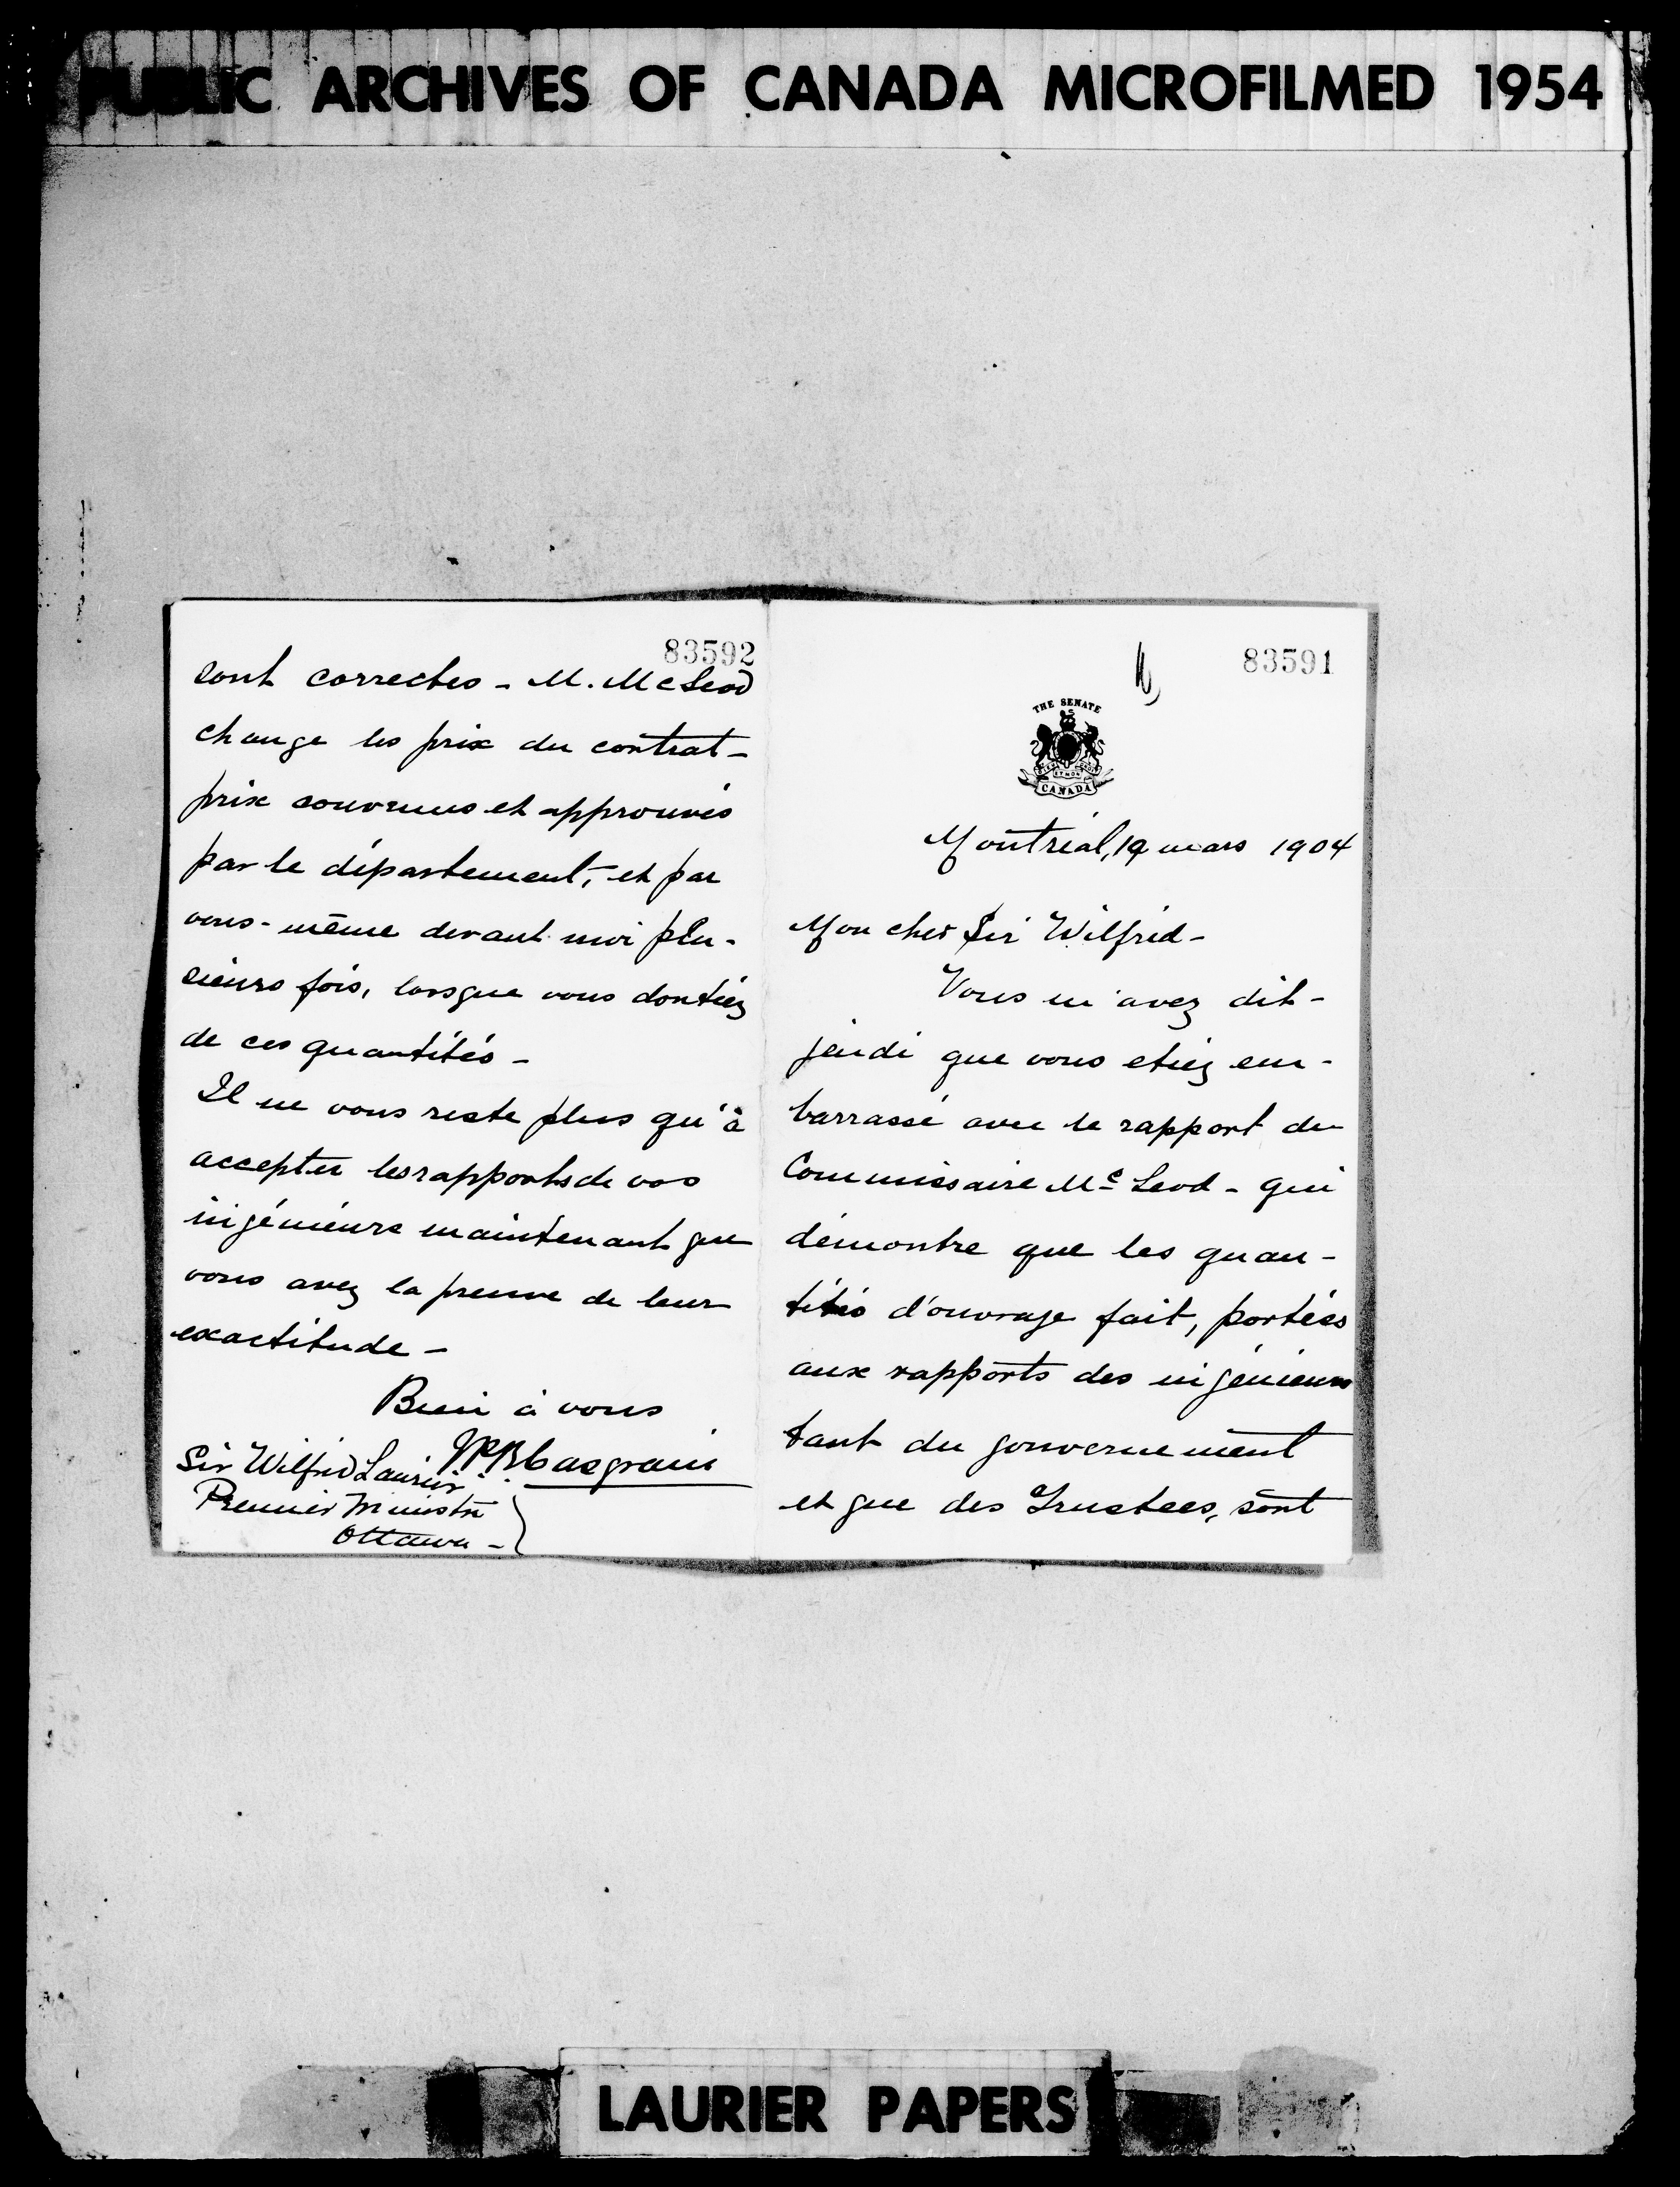 PUBLIC ARCHIVES OF CANADA MICROFILMED 1954
83591
THE SENATE
CANADA
Montréal, 19 mars 1904
Mon cher Sir Wilfrid -
Vous m'avez dit -
jeudi que vous etiez em-
barrassé avec le rapport du
Commissaire Mc Leod - qui
démontre que les quan-
tités d'ouvrage fait, portées
aux rapports des ingénieurs
tant du gouvernement
et que des Trustees, sont
83592
sont correctes - M. McLeod
change les prix du contrat -
prix convenus et approuvés
par le département, et par
vous-même devant moi plu-
sieurs fois, lorsque vous doutiez
de ces quantités -
Il ne vous reste plus qu'à
accepter les rapports de vos
ingénieurs maintenant que
vous avez la preuve de leur
exactitude -
Bien à vous
JPB Casgrain
Sir Wilfrid Laurier
Premier Ministre
Ottawa -
LAURIER PAPERS